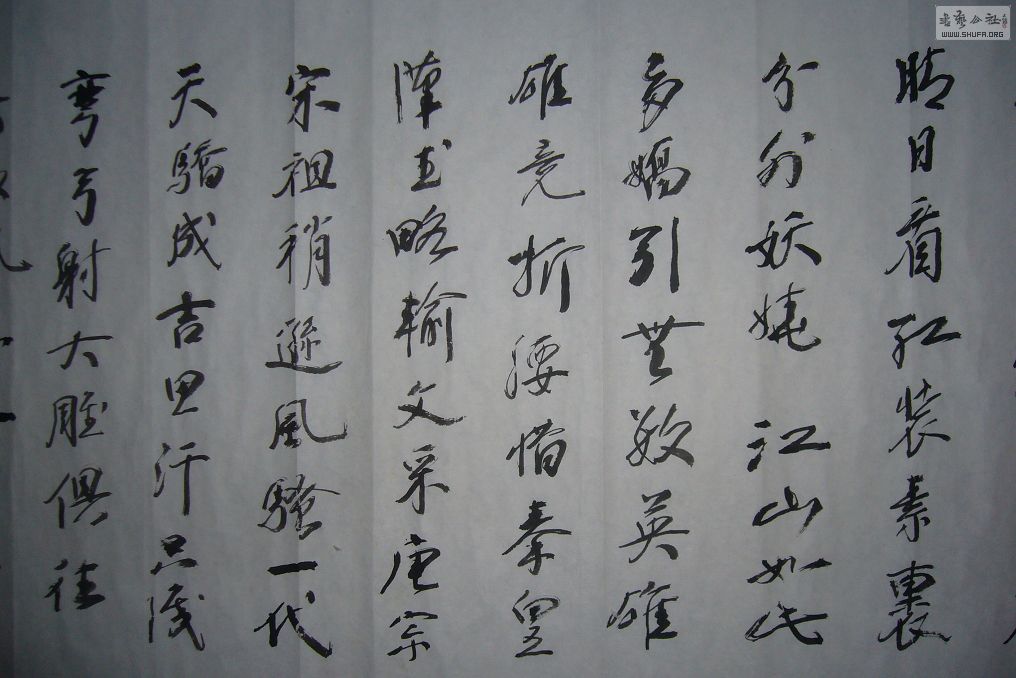 晴日看红装素裹
分外妖娆江山如此
多嬌引無数英雄
雄竞折腰惜秦皇
漢武略輸文采唐宗
宋祖稍遜風騷一代
天驕成吉思汗只識
彎弓射大雕俱往
書藝公社
WWW.SHUFA.ORG